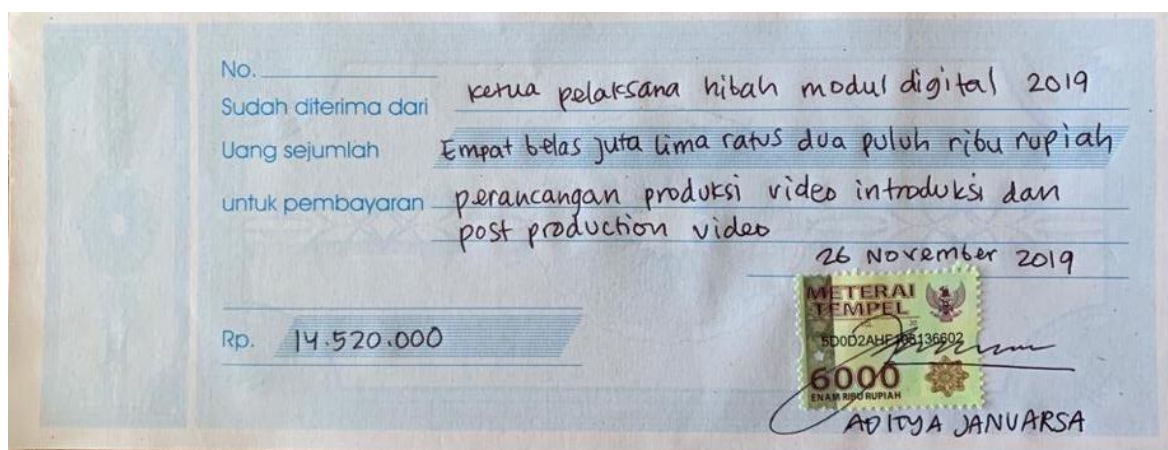 No.
Sudah diterima dari ketua pelaksana hibah modul digital 2019
Uang sejumlah Empat belas juta lima ratus dua puluh ribu rupiah
untuk pembayaran perancangan produksi video introduksi dan
post production video
26 November 2019
METERAI
TEMPEL
Rp. 14.520.000
6000
ENAM RIBU RUPIAH
ADITYA JANUARSA